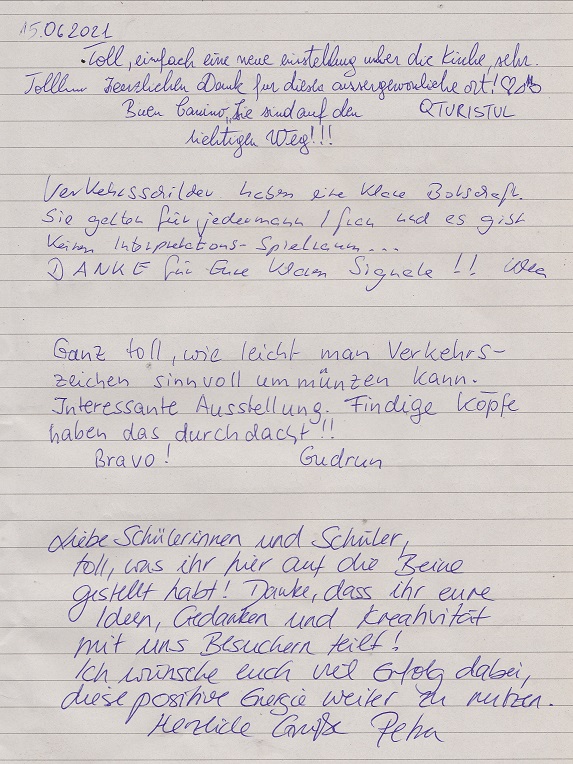 15.06.2021
Toll, einfach eine neue einstellung uber die Kirche, sehr.
Tolllm Herzlichen Dank für dieses aussergewonliche ort!
Buen Camino, Sie sind auf den QTURISTUL
richtigen Weg!!!
Verkehrsschilder haben eine klare Botschaft.
Sie gelten für jedermann / frau und es gibt
keinen Interpretations-Spielraum...
DANKE für Eure klaren Signale !!
Ganz toll, wie leicht man Verkehrs-
zeichen sinnvoll ummünzen kann.
Interessante Ausstellung. Findige Köpfe
haben das durchdacht!!
Bravo! Gudrun
Liebe Schülerinnen und Schüler,
toll, was ihr hier auf die Beine
gestellt habt! Danke, dass ihr eure
Ideen, Gedanken und Kreativität
mit uns Besuchern teilt!
Ich wünsche euch viel Erfolg dabei,
diese positive Energie weiter zu nutzen.
Herzliche Grüße Petra